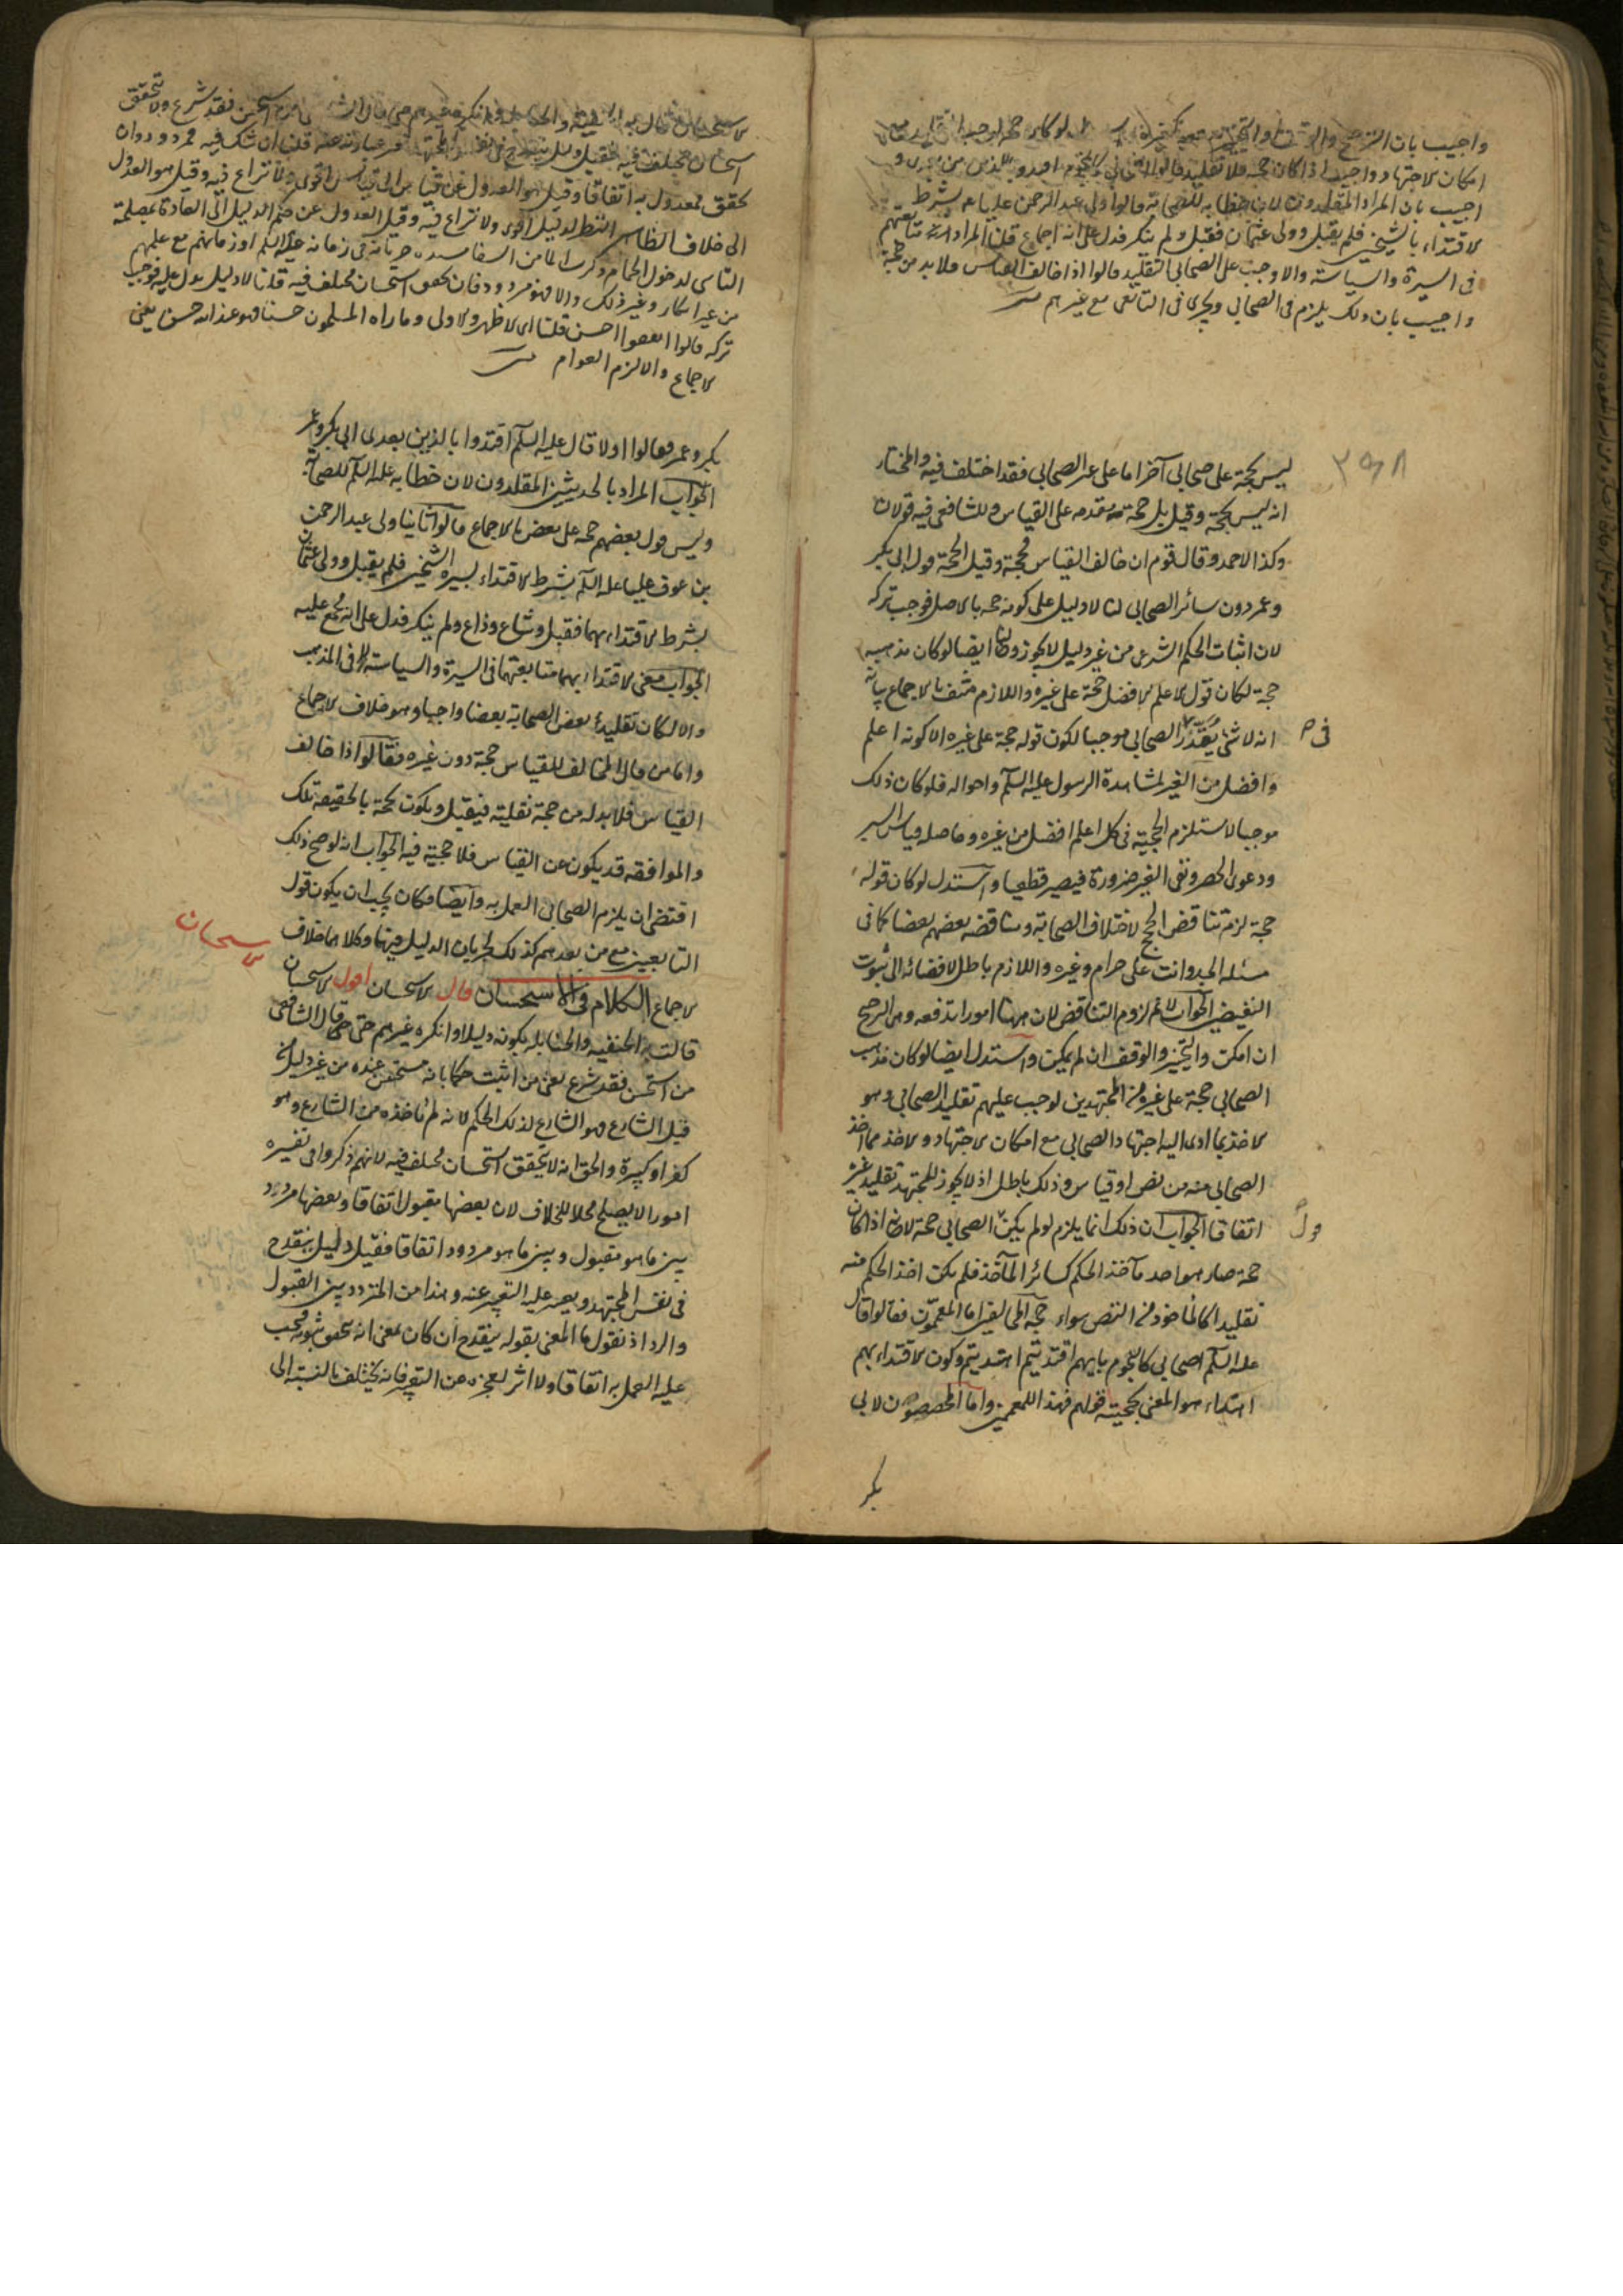 واجيب بان الترجيح والوقف او التخيير لو كان حجة لوجب التقليد مع
امكان الاجتهاد واجيب اذا كان حجة فلا تقليد قالوا اصحابي كالنجوم اقتدوا بالذين من بعدي و
اجيب بان المراد المقلدون لان خطابه للصحابة قالوا ولى عبد الرحمن عليا عم بشرط
الاقتداء بالشيخين فلم يقبل وولى عثمان فقبل ولم ينكر فدل على انه اجماع قلنا المراد متابعتهم
في السيرة والسياسة والا وجب على الصحابي التقليد قالوا اذا خالف القياس فلا بد من حجة
واجيب بان ذلك يلزم في الصحابي ويجري في التابعي مع غيرهم
ليس بحجة على صحابي آخر اما على غير الصحابي فقد اختلف فيه والمختار
انه ليس بحجة وقيل بل حجة مقدمه على القياس وللشافعي فيه قولان
وكذا لاحمد وقال قوم ان خالف القياس فحجة وقيل الحجة قول ابي بكر
وعمر دون سائر الصحابي لنا لا دليل على كونه حجه بالاصل فوجب تركه
لان اثبات الحكم الشرعي من غير دليل لا يجوز ولنا ايضا لو كان مذهبه
حجة لكان قول الاعلم الافضل حجة على غيره واللازم منتف بالاجماع بيانه
انه لا شئ يقدر في الصحابي موجبا لكون قوله حجة على غيره الا كونه اعلم
وافضل من الغير لمشاهدة الرسول عليه السلم واحواله فلو كان ذلك
موجبا لاستلزم الحجية في كل اعلم افضل من غيره وحاصله قياس السبر
ودعوى الحصر ونفى الغير ضرورة فيصير قطعيا واستدل لو كان قوله
حجة لزم تناقض الحجج لاختلاف الصحابة ومناقضة بعضهم بعضا كما في
مسئلة الجد وانت على حرام وغيره واللازم باطل لافضائه الى ثبوت
النقيضين الجواب لا نم لزوم التناقض لان ههنا امورا تدفعه وهي الترجيح
ان امكن والتخيير والوقف ان لم يمكن واستدل ايضا لو كان مذهب
الصحابي حجة على غيره من المجتهدين لوجب عليهم تقليد الصحابي وهو
الاخذ بما ادى اليه اجتهاد الصحابي مع امكان الاجتهاد والاخذ مما اخذ
الصحابي منه من نص او قياس وذلك باطل اذ لا يجوز للمجتهد تقليد غيره
اتفاقا الجواب ان ذلك انما يلزم لو لم يكن قول الصحابي حجة لانه اذا كان
حجة صار هو احد مآخذ الحكم كسائر المآخذ فلم يكن اخذ الحكم منه
تقليدا كالماخوذ من النص سواء حجة المخالفين اما المعممون فقالوا قال
عليه السلم اصحابي كالنجوم بايهم اقتديتم اهتديتم وكون الاقتداء بهم
اهتداء هو المعنى بحجية قولهم فهذا للمعممين واما المخصصون لابي
بكر
الاستحسان قال به الحنفية والحنابلة وانكره غيرهم حتى قال الشافعي من استحسن فقد شرع ولا يتحقق
استحسان مختلف فيه فقيل دليل ينقدح في نفس المجتهد تعسر عبارته عنه قلنا ان شك فيه فمردود وان
تحقق فمعمول به اتفاقا وقيل هو العدول عن قياس الى قياس اقوى ولا نزاع فيه وقيل هو العدول
الى خلاف النظاير لدليل اقوى ولا نزاع فيه وقيل العدول عن حكم الدليل الى العادة لمصلحة
الناس كدخول الحمام وشرب الماء من السقا قلنا مستنده جريانه في زمانه عليه السلم او زمانهم مع علمهم
من غير انكار وغير ذلك والا فهو مردود فان تحقق استحسان مختلف فيه قلنا لا دليل يدل عليه فوجب
تركه قالوا اتبعوا احسن قلنا اي الاظهر والاولى وما راه المسلمون حسنا فهو عند الله حسن يعني
الاجماع والا لزم العوام
بكر وعمر فقالوا اولا قال عليه السلم اقتدوا بالذين بعدى ابي بكر وعمر
الجواب المراد بالحديثين المقلدون لان خطابه عليه السلم للصحابة
وليس قول بعضهم حجة على بعض بالاجماع قالوا ثانيا ولى عبد الرحمن
بن عوف عليا عليه السلم بشرط الاقتداء بسيرة الشيخين فلم يقبل وولى عثمان
بشرط الاقتداء بهما فقبل وشاع وذاع ولم ينكر فدل على انه مجمع عليه
الجواب معنى الاقتداء بهما متابعتهما في السيرة والسياسة لا في المذهب
والا لكان تقليد بعض الصحابة بعضا واجبا وهو خلاف الاجماع
واما من قال المخالف للقياس حجة دون غيره فقالوا اذا خالف
القياس فلا بد له من حجة نقلية فيقبل ويكون الحجة بالحقيقة تلك
والموافقه قد يكون عن القياس فلا حجية فيه الجواب انه لو صح ذلك
اقتضى ان يلزم الصحابي العمل به وايضا فكان يجب ان يكون قول
التابعين مع من بعدهم كذلك لجريان الدليل فيهما وكلاهما خلاف
الاستحسان
الاجماع الكلام في الاستحسان قال الاستحسان اقول الاستحسان
قالت به الحنفيه والحنابله بكونه دليلا وانكره غيرهم حتى قال الشافعي
من استحسن فقد شرع يعني من اثبت حكما بانه مستحسن عنده من غير دليل من
قبل الشارع فهو الشارع لذلك الحكم لانه لم ياخذه من الشارع وهو
كفر او كبيرة والحق انه لا يتحقق استحسان مختلف فيه لانهم ذكروا في تفسيره
امورا لا يصلح محلا للخلاف لان بعضها مقبول اتفاقا وبعضها مردد
بين ما هو مقبول وبين ما هو مردود اتفاقا فقيل دليل ينقدح
في نفس المجتهد ويعسر عليه التعبير عنه وهذا من المتردد بين القبول
والرد اذ نقول ما المعنى بقوله ينقدح ان كان بمعنى انه يتحقق ثبوته فيجب
عليه العمل به اتفاقا ولا اثر لعجزه عن التعبير فانه يختلف بالنسبة الى